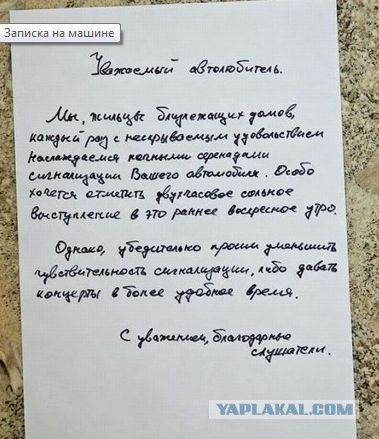 Записка на машине
Уважаемый автолюбитель.
Мы, жильцы близлежащих домов,
каждый раз с нескрываемым удовольствием
наслаждаемся ночными серенадами
сигнализации Вашего автомобиля. Особо
хочется отметить двухчасовое сольное
выступление в это раннее воскресное утро.
Однако, убедительно просим уменьшить
чувствительность сигнализации, либо давать
концерты в более удобное время.
С уважением, благодарные
слушатели.
YAPLAKAL.COM